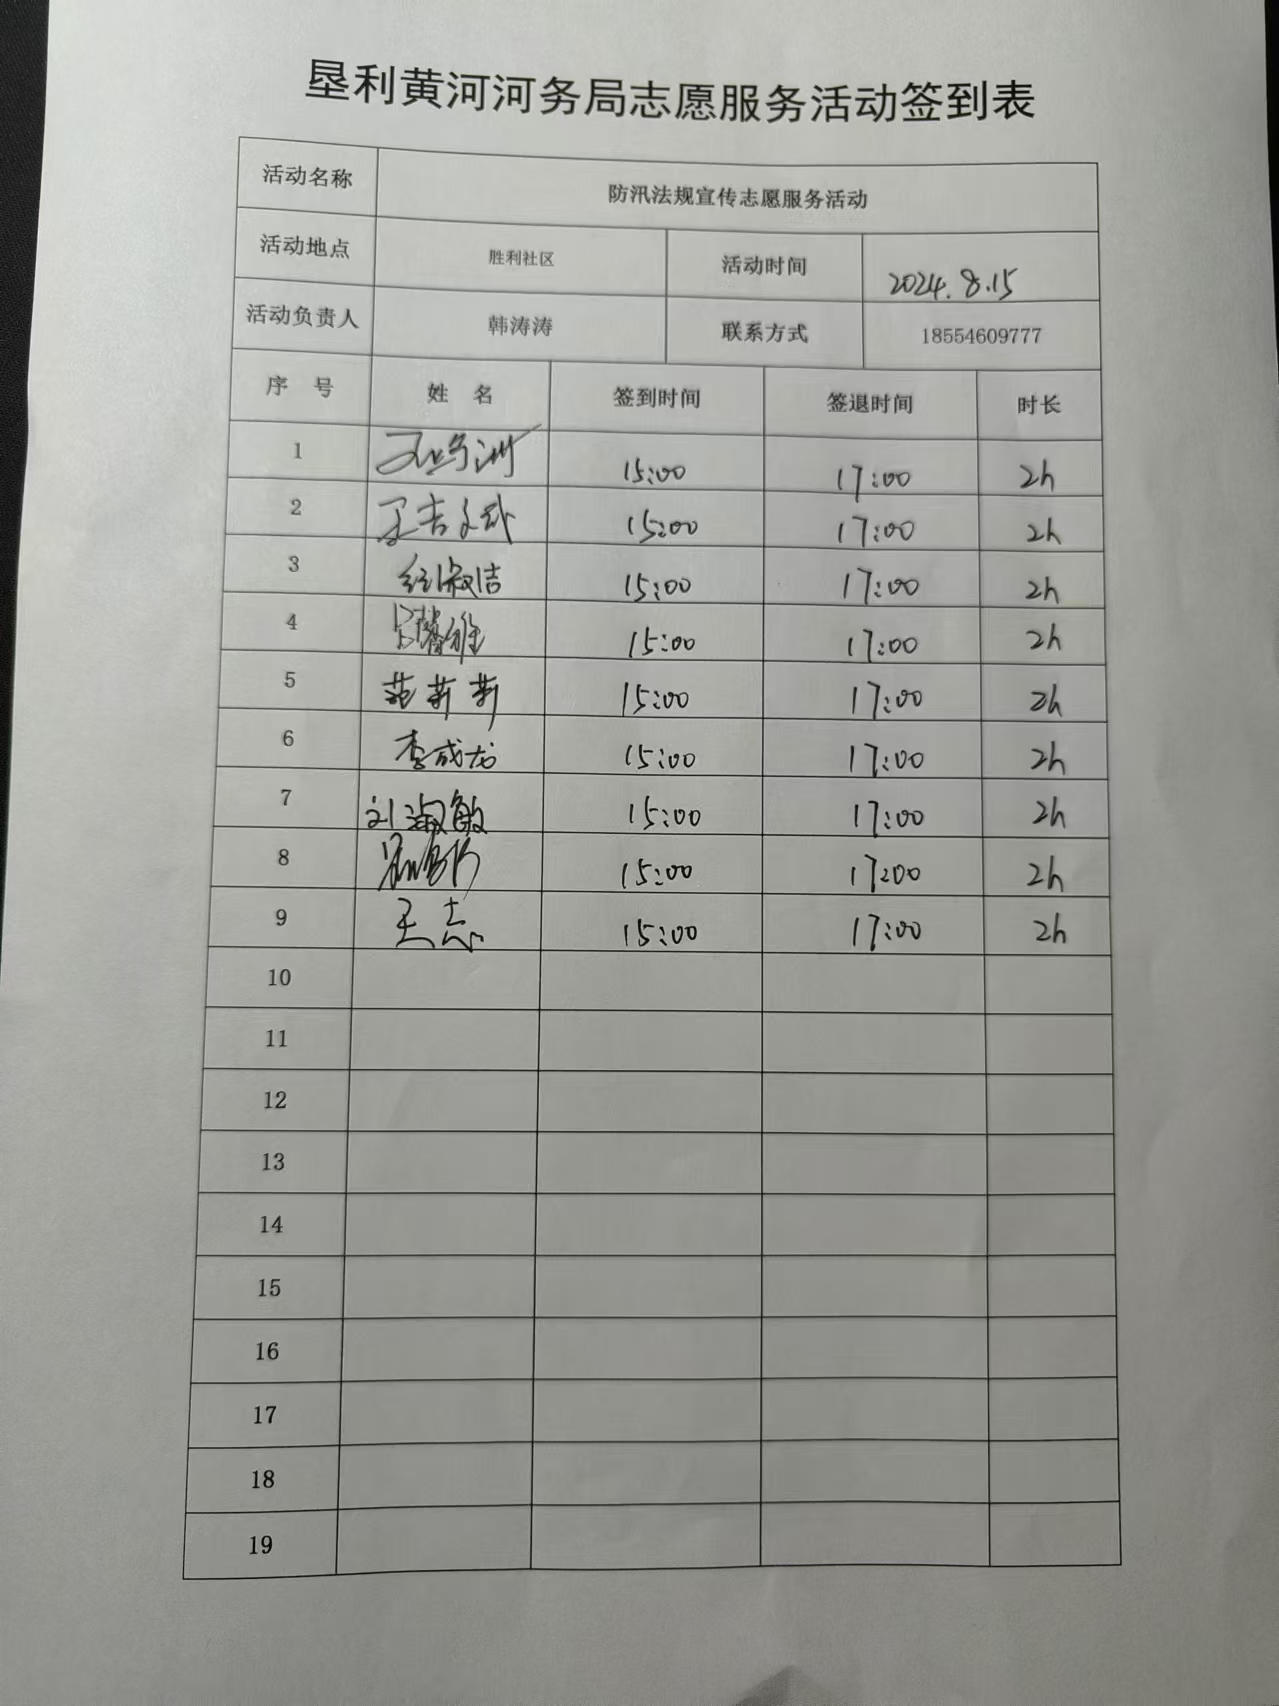 垦利黄河河务局志愿服务活动签到表
活动名称 防汛法规宣传志愿服务活动
活动地点 胜利社区 活动时间 2024.8.15
活动负责人 韩涛涛 联系方式 18554609777
序 号 姓 名 签到时间 签退时间 时长
1 15:00 17:00 2h
2 15:00 17:00 2h
3 15:00 17:00 2h
4 15:00 17:00 2h
5 范莉莉 15:00 17:00 2h
6 李成龙 15:00 17:00 2h
7 刘淑敏 15:00 17:00 2h
8 15:00 17:00 2h
9 王志 15:00 17:00 2h
10
11
12
13
14
15
16
17
18
19